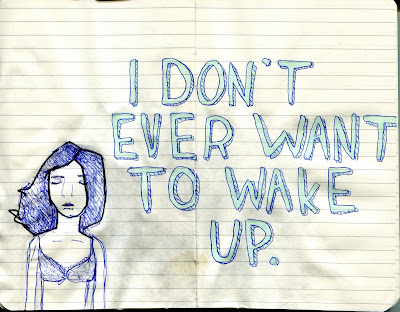 I DON'T
EVER WANT
TO WAKE
UP.